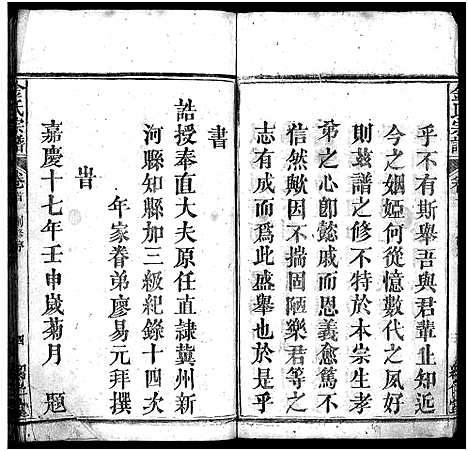 金氏宗譜
乎不有斯舉吾與君輩止知近
今之姻婭何從憶數代之夙好
則茲譜之修不特於本宗生孝
弟之心卽懿戚而恩義愈篤不
信然歟因不揣固陋樂君等之
志有成而爲此盛舉也於是乎
書
誥授奉直大夫原任直隷冀州新
河縣知縣加三級紀錄十四次
年家眷弟廖易元拜撰
旹
嘉慶十七年壬申歲菊月 題
金氏宗譜
卷首
四